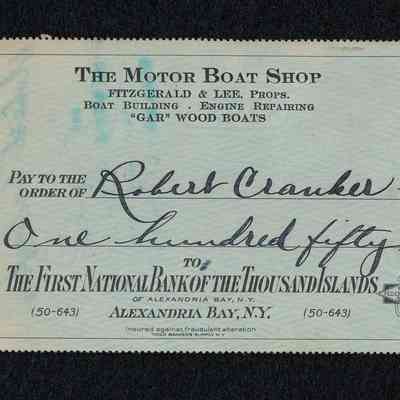 THE MOTOR BOAT SHOP
FITZGERALD & LEE, PROPS.
BOAT BUILDING . ENGINE REPAIRING
"GAR" WOOD BOATS
PAY TO THE
ORDER OF Robert Cranker
One hundred fifty
TO
THE FIRST NATIONAL BANK OF THE THOUSAND ISLANDS
OF ALEXANDRIA BAY, N.Y.
(50-643) ALEXANDRIA BAY, N.Y. (50-643)
Insured against fraudulent alteration